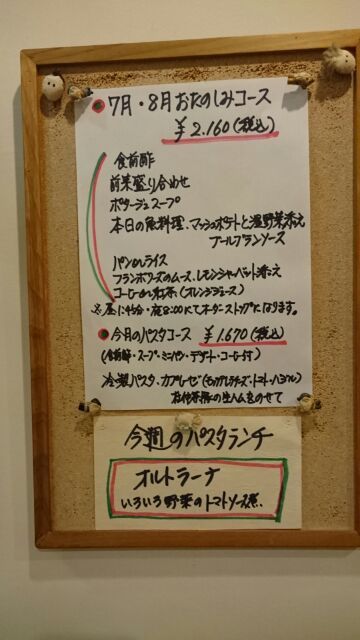 ● 7月・8月おたのしみコース
¥2.160(税込)
食前酢
前菜盛り合わせ
ポタージュスープ
本日の魚料理、マッシュポテトと温野菜添え
ブールブランソース
パンorライス
フランボワーズのムース、レモンシャーベット添え
コーヒーor紅茶(オレンジジュース)
※昼に45分・夜8:00にてオーダーストップになります。
● 今月のパスタコース ¥1.670(税込)
(食前酢・スープ・ミニパン・デザート・コーヒー付)
冷製パスタ、カプレーゼ(モッツァレラチーズ・トマト・バジル)
生ハムをのせて
今週のパスタランチ
オルトラーナ
いろいろ野菜のトマトソース煮